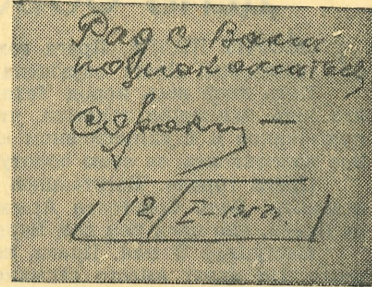 Рад с Вами
познакомиться
12/I-1957г.